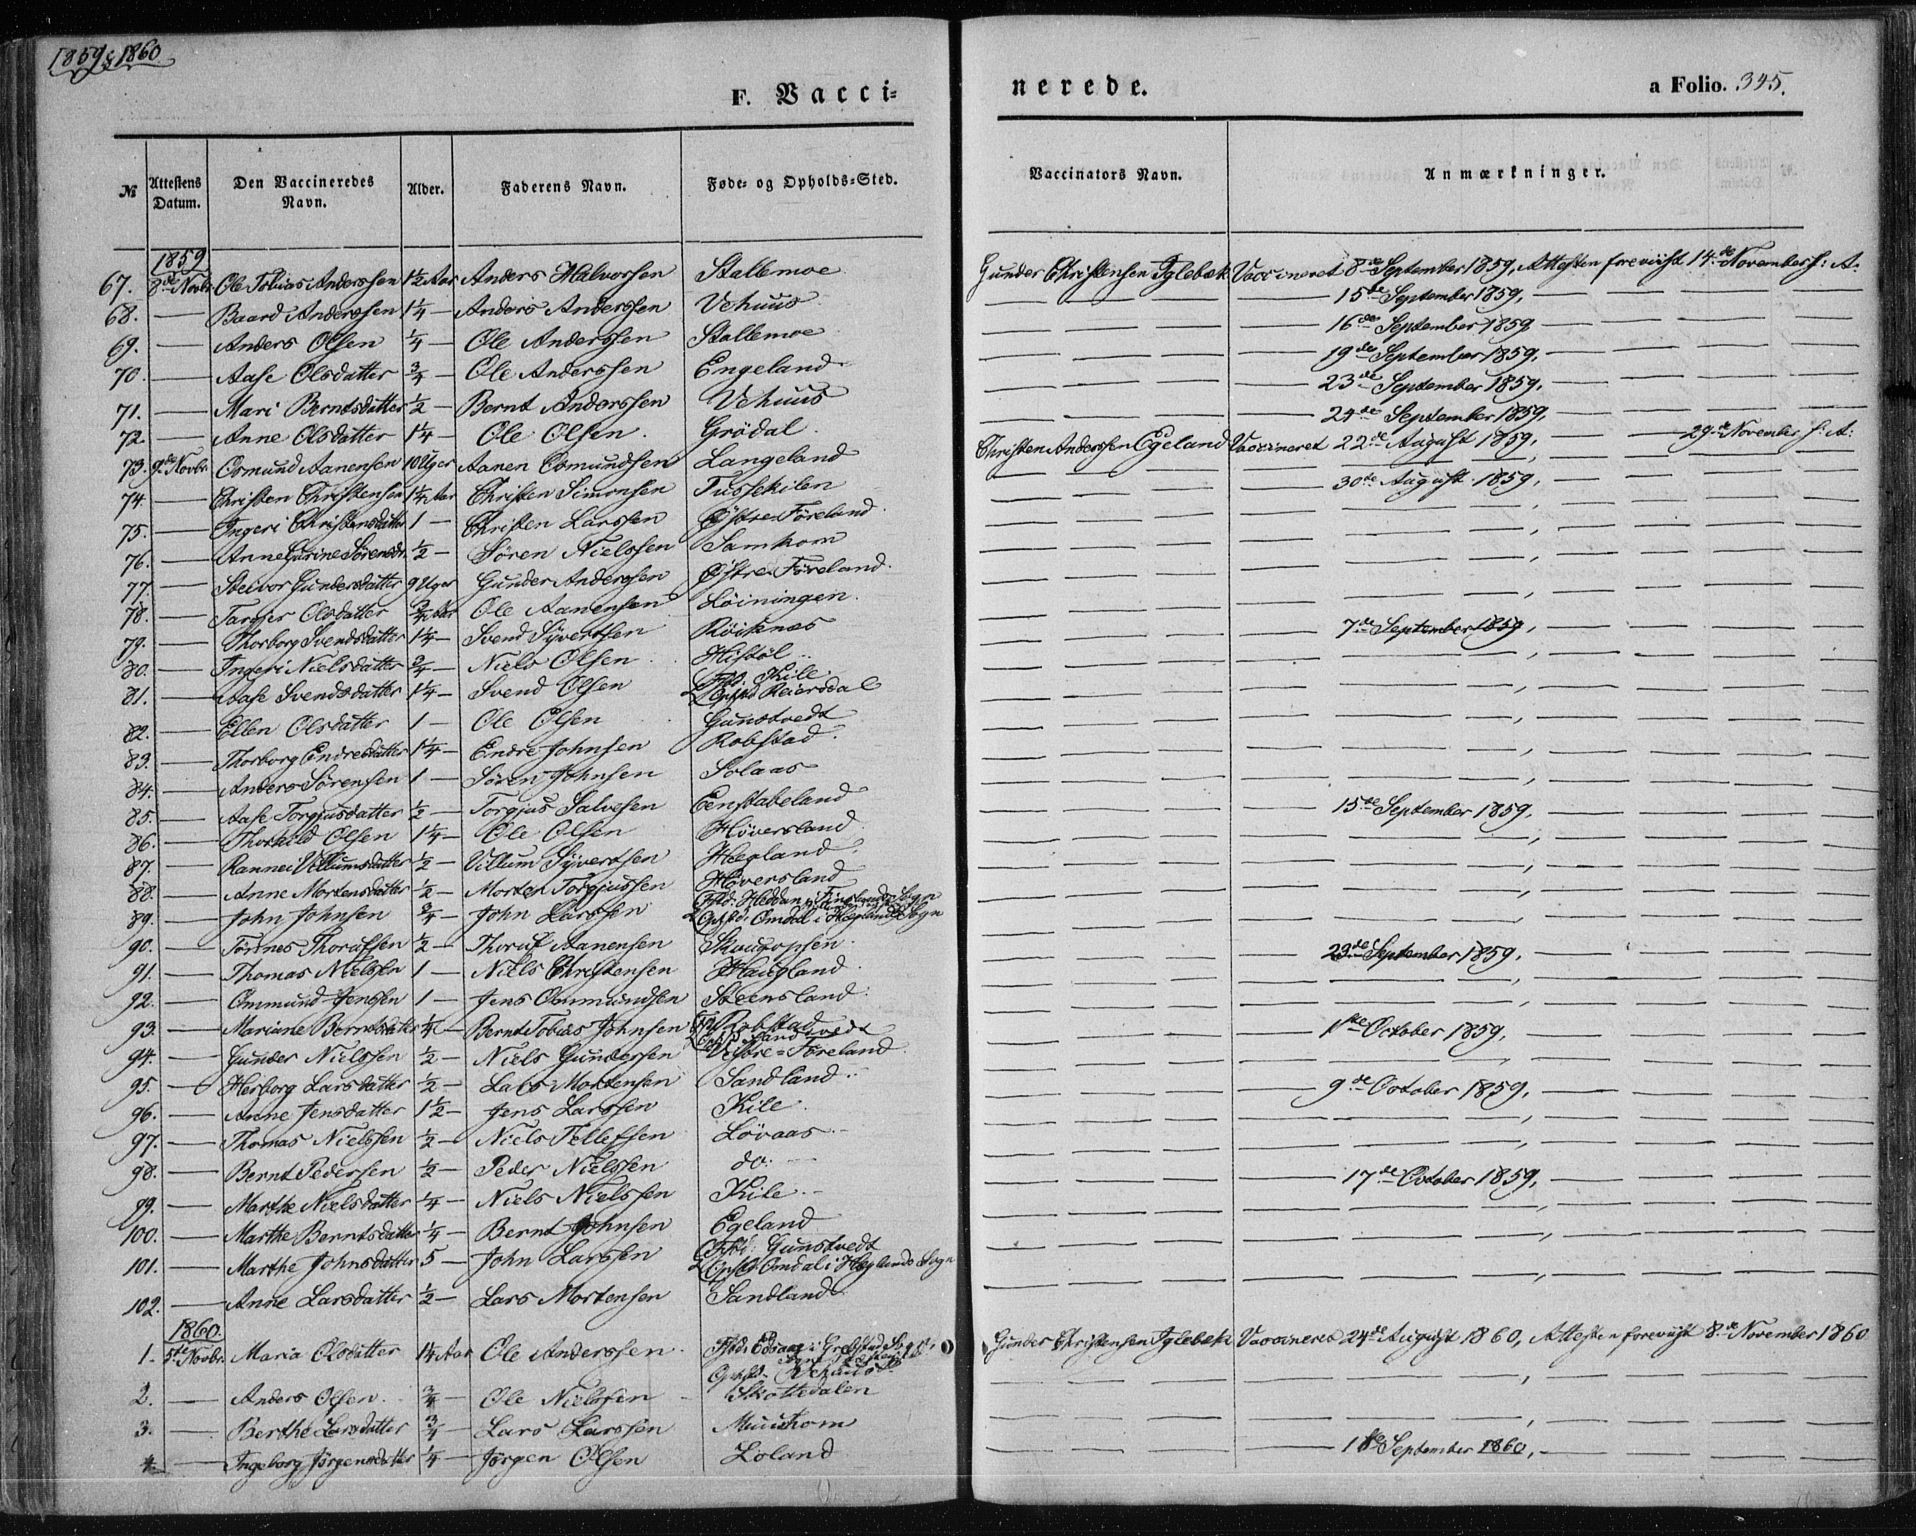 1859 & 1860
F. Vacci=
nerede.
a Folio. 345.
№
Attestens Datum.
Den Vaccineredes Navn.
Alder.
Faderens Navn.
Føde- og Opholds-Sted.
Vaccinators Navn.
Anmærkninger.
1859
67. 8de Novbr Ole Tobias Anderssen 1½ Aar Anders Halvorsen Stallemoe Gunder Christensen Iglebæk Vaccineret 8de September 1859, Attesten foreviist 14de November s: A.
68. — Baard Anderssen 1¼ — Anders Anderssen Vehuus — 15de September 1859, —
69. — Anders Olsen ¼ — Ole Anderssen Stallemoe — 16de September 1859 —
70. — Aase Olsdatter ¾ — Ole Anderssen Engeland — 19de September 1859. —
71. — Mari Berntsdatter ½ — Bernt Anderssen Vehuus — 23de September 1859, —
72. — Anne Olsdatter 1¼ — Ole Olsen Grödal — 24de September 1859, —
73. 9de Novbr Osmund Aanensen 10 Uger Aanen Osmundsen Langeland Christen Anderssen Egeland Vaccineret 22de August 1859, — 29de November s: A:
74. — Christen Christensen 1¼ Aar Christen Simonsen Tussekilen — 30de August 1859, —
75. — Ingeri Christensdatter 1 — Christen Larssen Østre Föreland — — —
76. — Anne Gurine Sörensdr ½ — Sören Nielssen Samkom — — —
77. — Steivor Gundersdatter 9 Uger Gunder Anderssen Østre Föreland — — —
78. — Targjer Olsdatter ¾ Aar Ole Aanensen Löiningen — — —
79. — Thorborg Svendsdatter 1¼ — Svend Syvertsen Röiknes — 7de September 1859, —
80. — Ingeri Nielsdatter ¾ — Niels Olsen Histöl — — —
81. — Aase Svendsdatter 1¼ — Svend Olsen Fsd: Kile Opsd Reiersdal — — —
82. — Ellen Olsdatter 1 — Ole Olsen Gunstvedt — — —
83. — Thorborg Endresdatter 1¼ — Endre Johnsen Robstad — — —
84. — Anders Sörensen 1 — Sören Johnsen Solaas — — —
85. — Aase Torgjusdatter ½ — Torgjus Salvesen Eenstabeland — 15de September 1859, —
86. — Thorkild Olsen 1¼ — Ole Olsen Höversland — — —
87. — Rannei Villumsdatter ½ — Villum Syvertsen Hægland — — —
88. — Anne Mortensdatter ½ — Morten Torgjussen Höversland — — —
89. — John Johnsen ¾ — John Larssen Fsd: Heddan i Finslands Sogn Opsd: Omdal i Hæglands Sogn — — —
90. — Tönnes Thorufsen ½ — Thoruf Aanensen Skougopsen — 23de September 1859, —
91. — Thomas Nielsen 1 — Niels Christensen Haugland — — —
92. — Ommund Jenssen 1 — Jens Ommundsen Steensland — — —
93. — Mariane Berntsdatter ¼ — Bernt Tobias Johnsen Robstad — 1ste October 1859, —
94. — Gunder Nielssen ½ — Niels Gunderssen Vestre = Föreland — — —
95. — Herborg Larsdatter ½ — Lars Mortensen Sandland — 9de October 1859, —
96. — Anne Jensdatter 1½ — Jens Larssen Kile — — —
97. — Thomas Nielssen ½ — Niels Tellefsen Lövaas — — —
98. — Bernt Pedersen ½ — Peder Nielssen do. — 17de October 1859, —
99. — Marthe Nielsdatter ¼ — Niels Nielssen Kile — — —
100. — Marthe Berntsdatter ¼ — Bernt Johnsen Egeland — — —
101. — Marthe Johnsdatter 5 — John Larssen Fsd: Gunstvedt Opsd Omdal i Hæglands Sogn — — —
102. — Anne Larsdatter ½ — Lars Mortensen Sandland — — —
1860.
1. 5te Novbr. Maria Olsdatter 1¼ Aar Ole Anderssen Opsd: Vehuus Gunder Christensen Iglebæk Vaccineret 24de August 1860, Attesten foreviist 8de November 1860
2. — Anders Olsen ¾ — Ole Nielssen Skottedalen — — —
3. — Berthe Larsdatter ¾ — Lars Larssen Muushom — — —
4. — Ingeborg Jörgensdatter ¼ — Jörgen Olsen Loland — 1ste September 1860, —